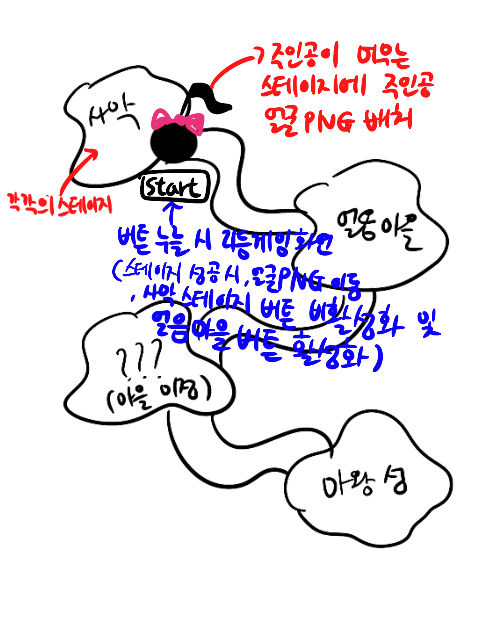 주인공이 머무는
스테이지에 주인공
얼굴 PNG 배치
사막
각각의 스테이지
Start
얼음마을
버튼 누를 시 리듬게임화면
(스테이지 성공시, 얼굴PNG 이동
, 사막 스테이지 버튼 비활성화 및
얼음마을 버튼 활성화)
???
(마을 미정)
마왕성